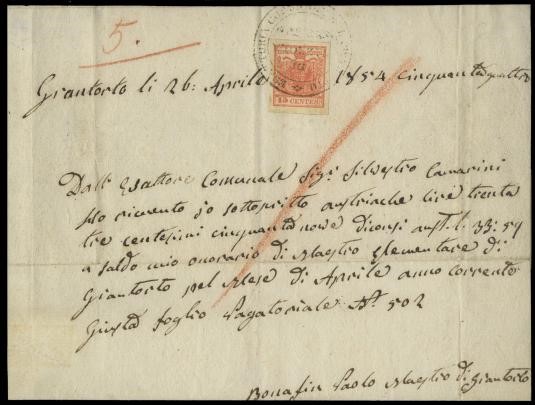 5.
Giantorto li 26: Aprile 1854 cinquantaquattro
15 CENTES
Dall' Esattore Comunale Sigr: Silvestro Camarini
ho ricevuto io sottoscritto austriache lire trenta
tre centesimi cinquanta nove diconsi aust. L. 33:59
a saldo mio onorario di Maestro Elementare di
Giantorto pel Mese di Aprile anno corrente
Giusta foglio Pagatoriale N. 502
Bonafin Paolo Maestro di Giantorto